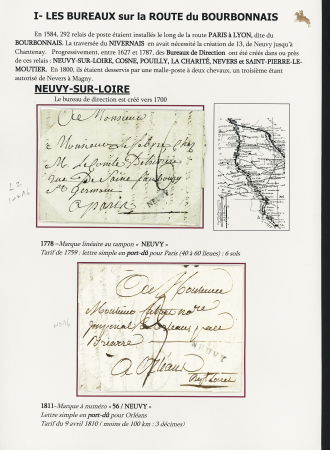 I- LES BUREAUX sur la ROUTE du BOURBONNAIS
En 1584, 292 relais de poste étaient installés le long de la route PARIS à LYON, dite du
BOURBONNAIS. La traversée du NIVERNAIS en avait nécessité la création de 13, de Neuvy jusqu'à
Chantenay. Progressivement, entre 1627 et 1787, des Bureaux de Direction ont été créés dans ou près
de ces relais : NEUVY-SUR-LOIRE, COSNE, POUILLY, LA CHARITÉ, NEVERS et SAINT-PIERRE-LE-
MOUTIER. En 1800, ils étaient desservis par une malle-poste à deux chevaux, un troisième étant
autorisé de Nevers à Magny.
NEUVY-SUR-LOIRE
Le bureau de direction est créé vers 1700
A Monsieur
Monsieur Lefebvre chez
M. le Comte
rue de Seine faubourg
St Germain
a paris
NEUVY
1778 –Marque linéaire au tampon « NEUVY »
Tarif de 1759 : lettre simple en port-dû pour Paris (40 à 60 lieues) : 6 sols
A Monsieur
Monsieur
Briarre
A Orléans
NEUVY
1811-Marque à numéro « 56 / NEUVY »
Lettre simple en port-dû pour Orléans
Tarif du 9 avril 1810 ( moins de 100 km : 3 décimes)